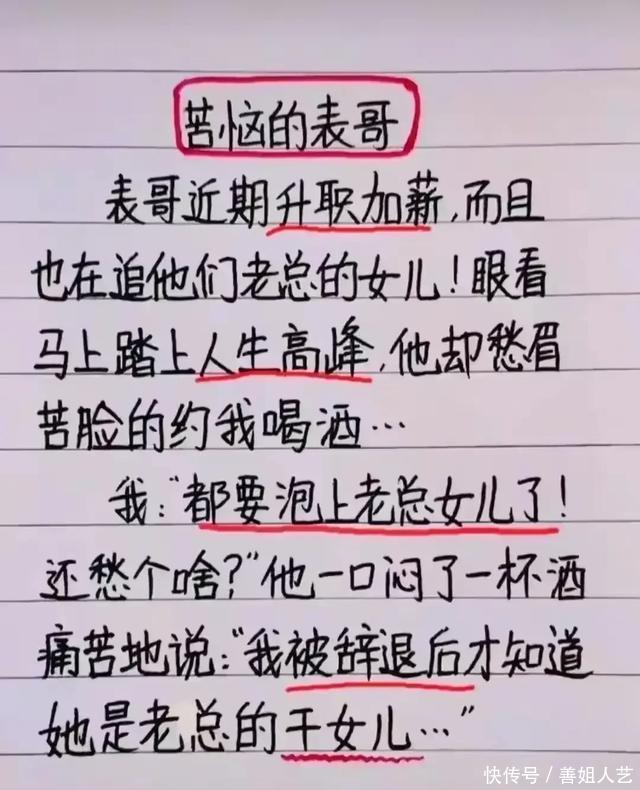 苦恼的表哥
表哥近期升职加薪,而且
也在追他们老总的女儿!眼看
马上踏上人生高峰,他却愁眉
苦脸的约我喝酒…
我:“都要泡上老总女儿了!
还愁个啥?”他一口闷了一杯酒
痛苦地说:“我被辞退后才知道
她是老总的干女儿…”
快传号/善姐人艺